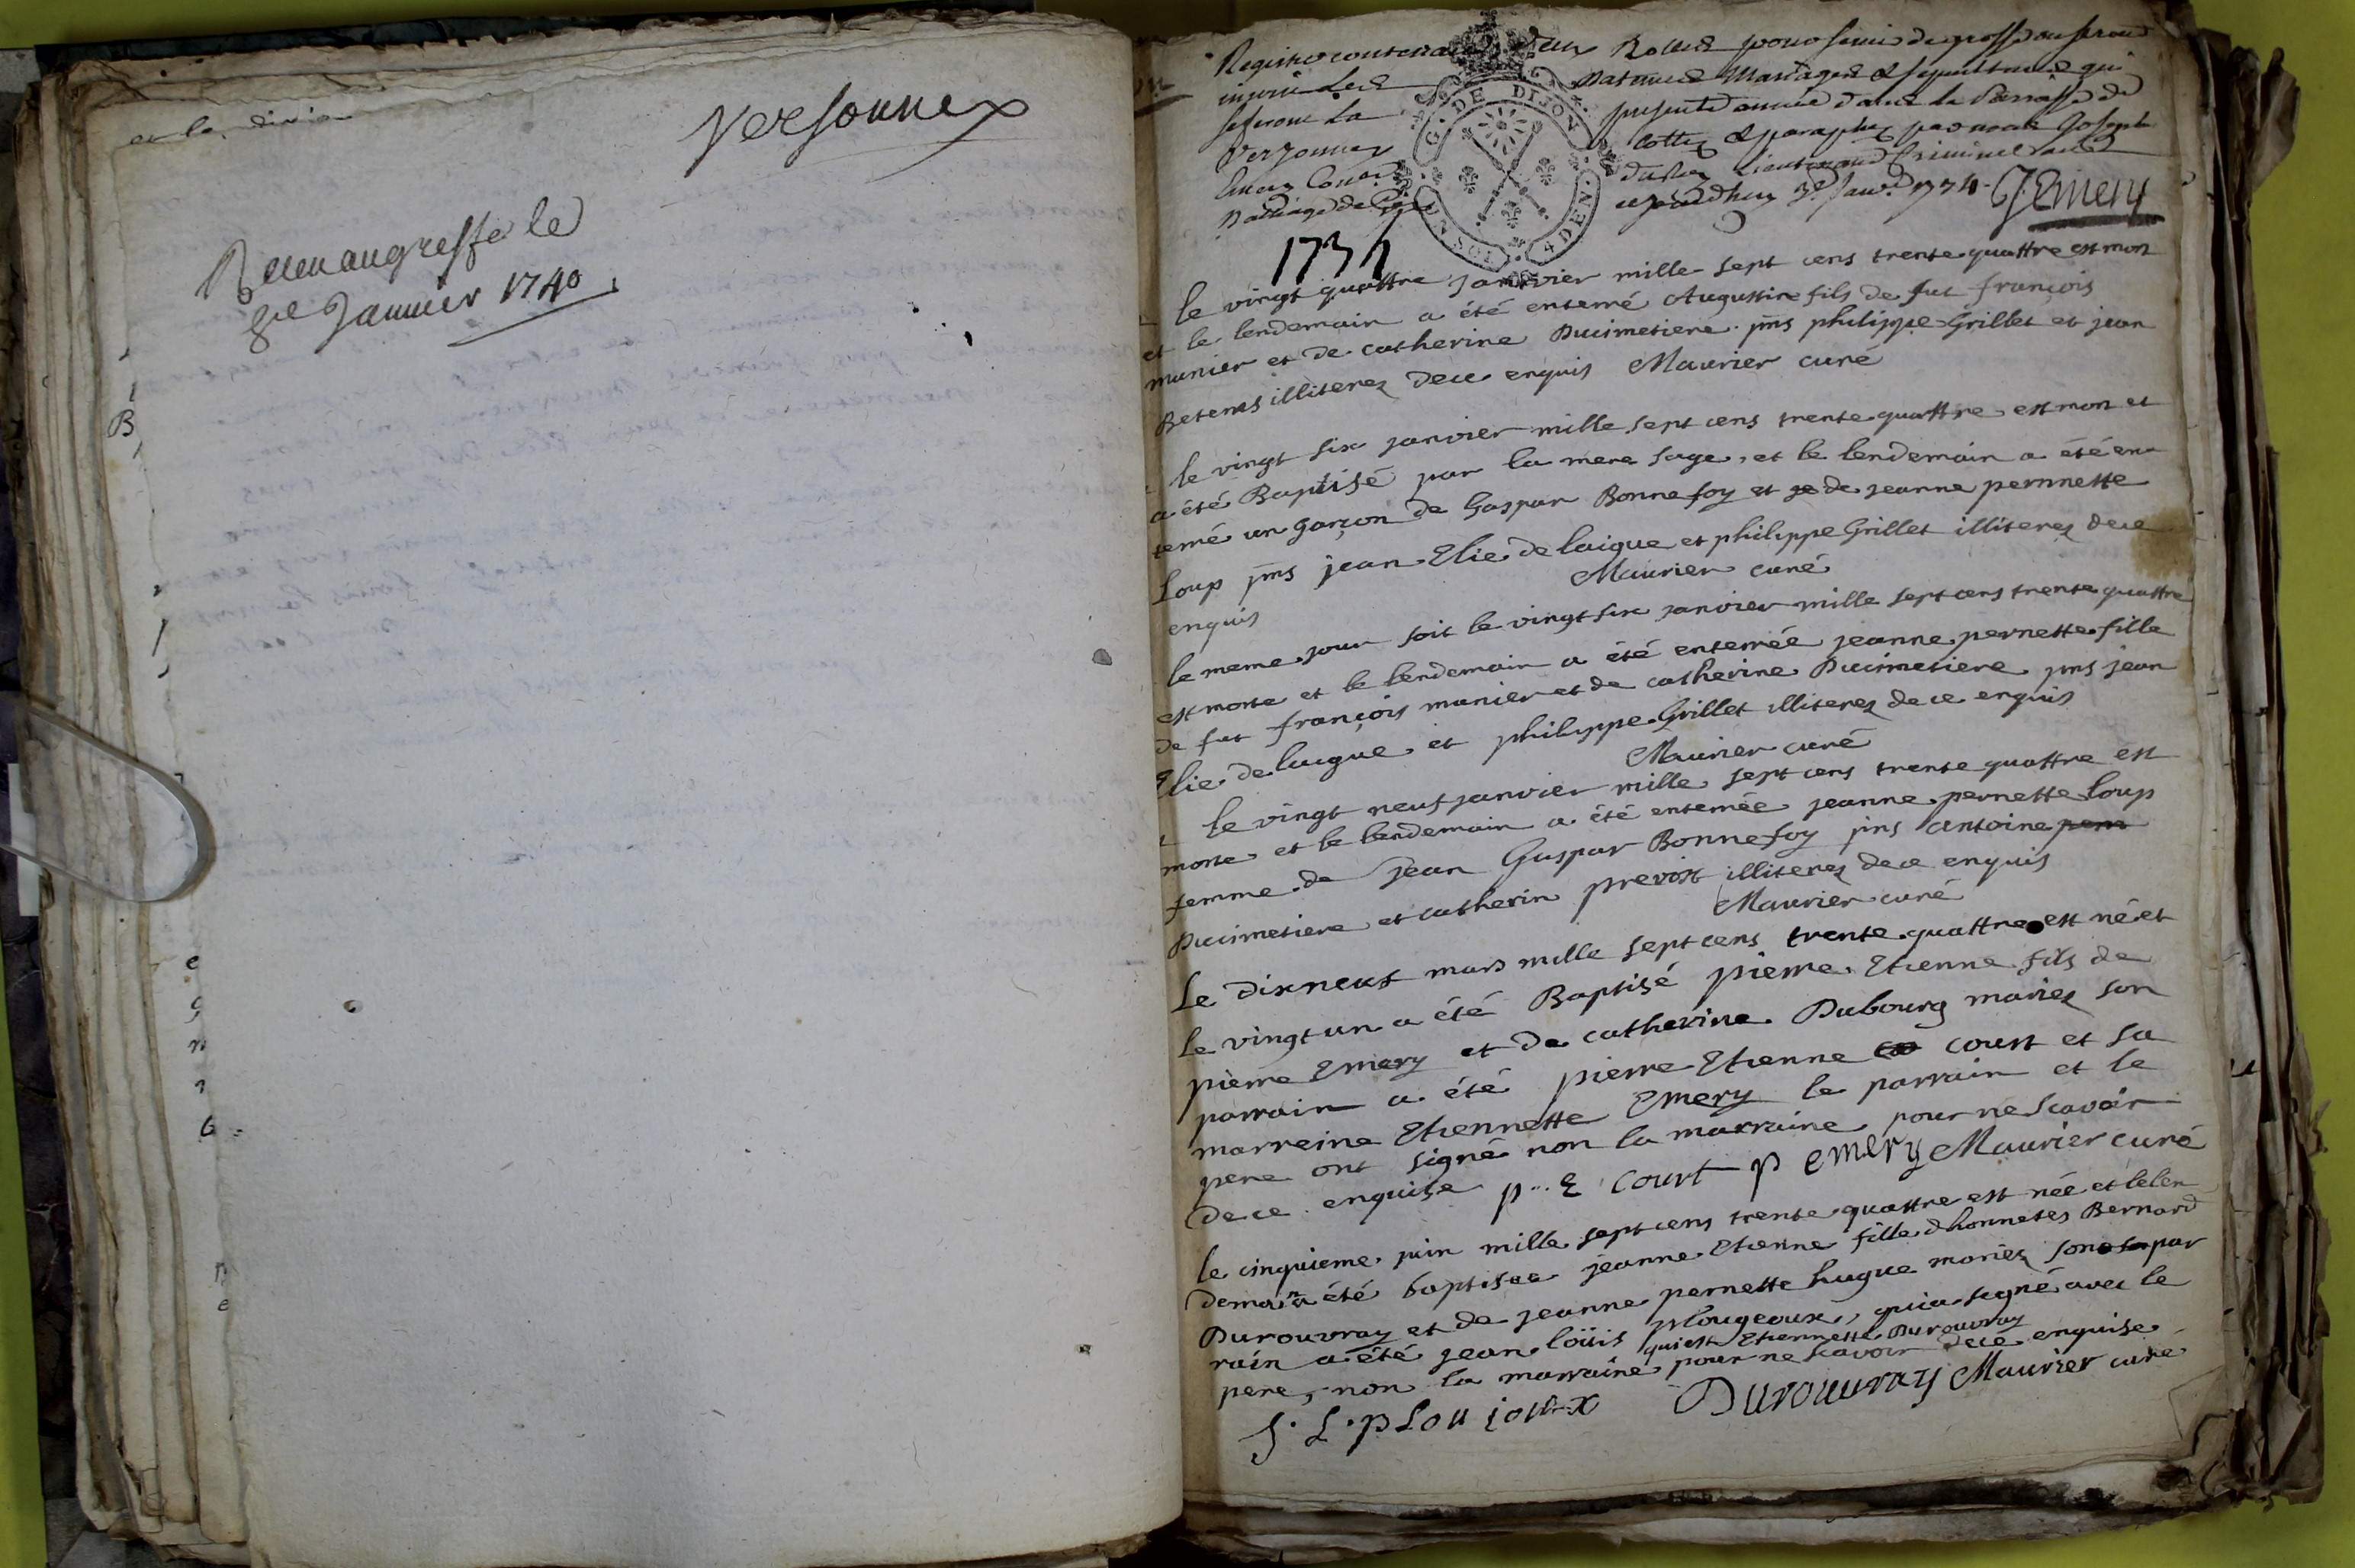 Versonnex
Receu au greffe le
8e Janvier 1740
Registre contenant deux Rolles pour servir de grosse
inscrire les Batemes Mariages & sepultures qui
se feront La presente année dans la Parroisse de
Versonnex cotté & paraphé par nous Joseph
Emery Conser Lieutenant Criminel au
Bailliage de Gex ce jourdhuy 3e Janv. 1734 JEmery
G. DE DIJON
UN SOL 4 DEN.
1734
le vingt quattre janvier mille sept cens trente quattre est mort
et le lendemain a été enterré Augustin fils de fut françois
munier et de catherine Ducimetiere. pns philippe Grillet et jean
Betems illiterez de ce enquis Maurier curé
le vingt six janvier mille sept cens trente quattre est mort et
a été Baptisé par la mere sage, et le lendemain a été en-
terré un garçon de Gaspar Bonnefoy et de jeanne pernnette
Loup pns jean Elie de laigue et philippe Grillet illiterez de ce
enquis Maurier curé
le meme jour soit le vingt six janvier mille sept cens trente quattre
est morte et le lendemain a été enterrée jeanne pernette fille
de fut françois munier et de catherine Ducimetiere pns jean
Elie de laigue et philippe Grillet illiterez de ce enquis
Maurier curé
le vingt neuf janvier mille sept cens trente quattre est
morte et le lendemain a été enterrée jeanne pernette Loup
femme de jean Gaspar Bonnefoy pns antoine
Ducimetiere et catherin prevost illiterez de ce enquis
Maurier curé
Le dixneuf mars mille sept cens trente quattre est né et
le vingt un a été Baptisé pierre Etienne fils de
pierre Emery et de catherine Dubourg mariez son
parrain a été pierre Etienne court et sa
marreine Etiennette Emery le parrain et le
pere ont signé non la marraine pour ne scavoir
de ce enquise p. E court p emery Maurier curé
le cinquieme juin mille sept cens trente quattre est née et le len
demain a été baptisee jeanne Etienne fille dhonnetes Bernard
Durouvray et de jeanne pernette hugue mariez son par
rain a été jean loüis plougeoux, qui a segné avec le
pere, non la marraine qui est Etiennette Durouvray pour ne scavoir de ce enquise
J. L. ploujoux Durouvray Maurier curé